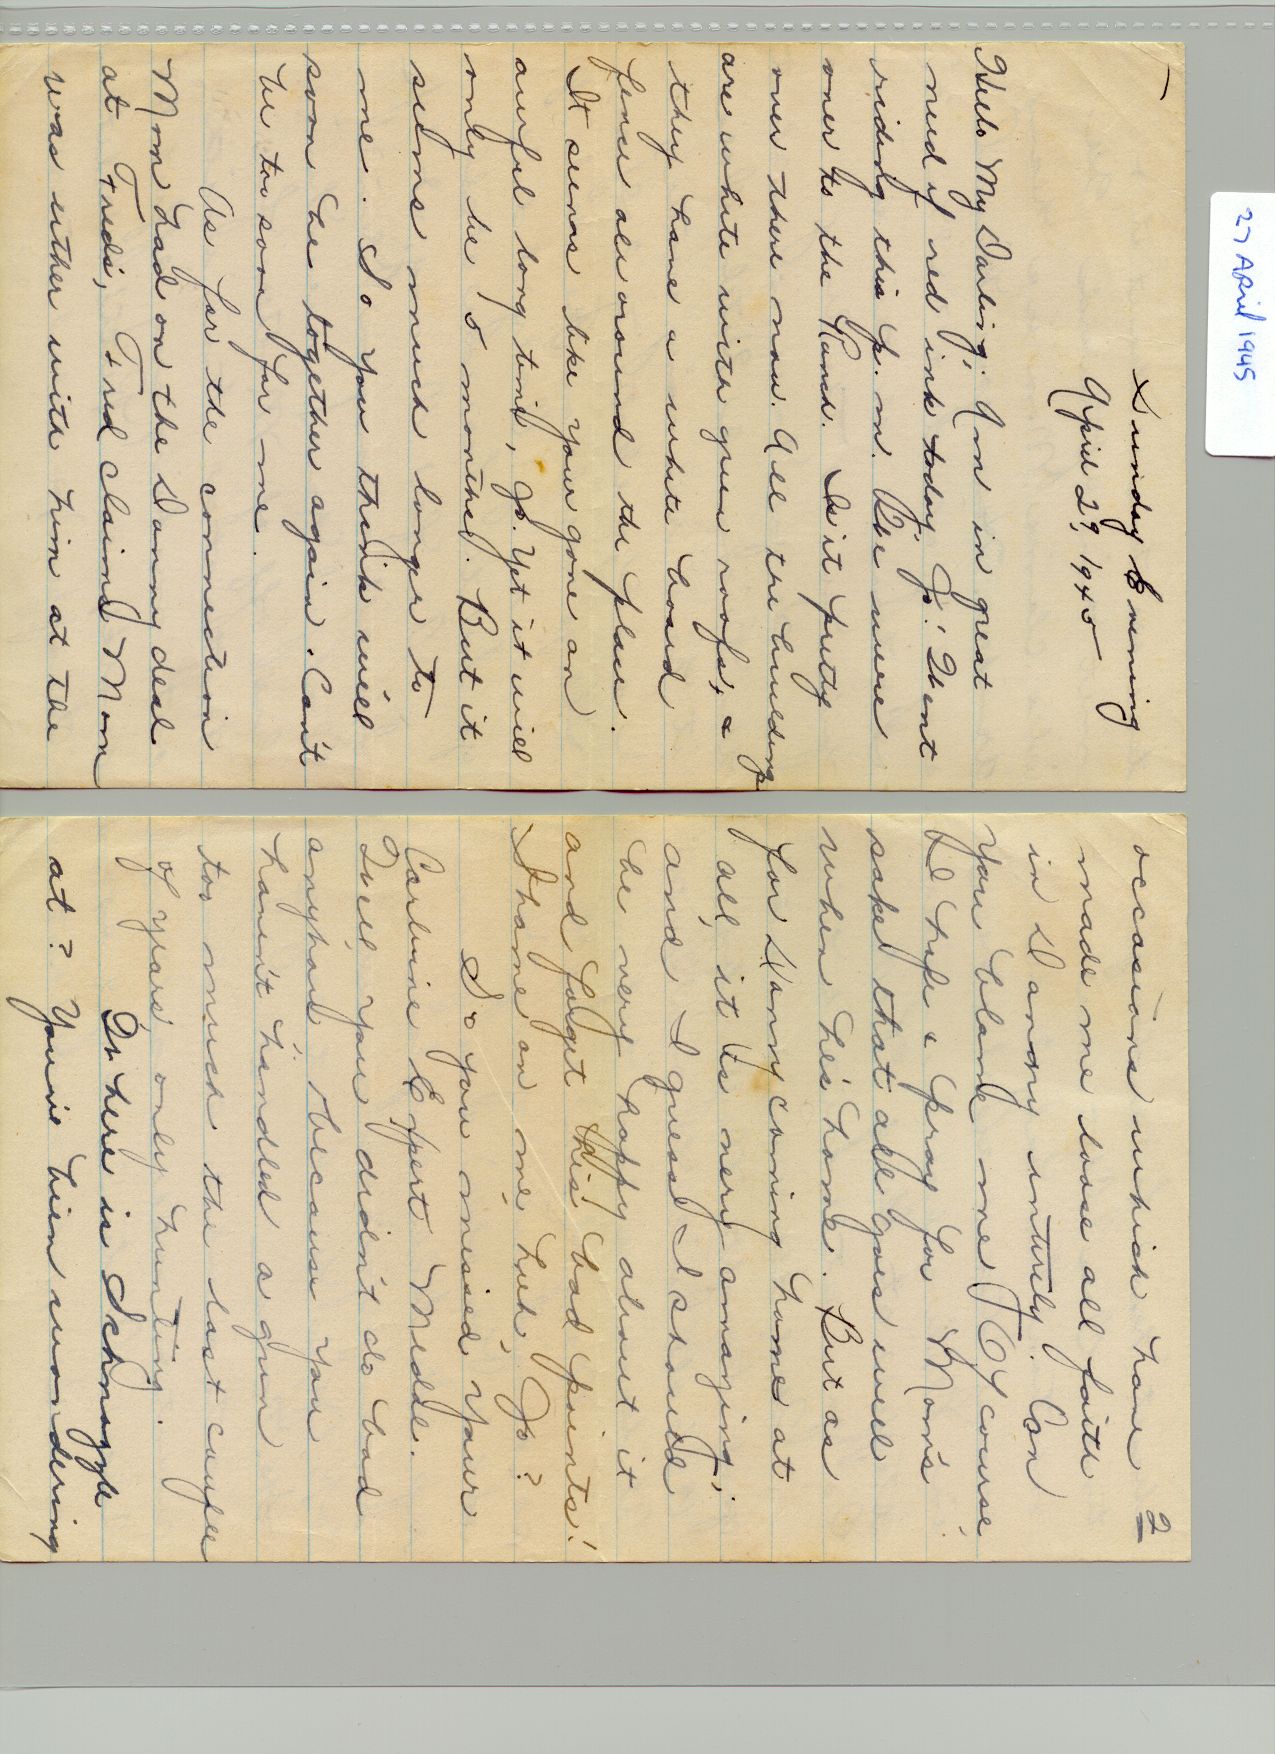 27 April 1945
Sunday Evening
April 29, 1945
Hello My Darling; Am in great
need of red ink today, Jo! Went
riding this p.m. We were
over to the Ranch. Is it pretty
over there now. All the buildings
are white with green roofs, &
they have a white board
fence all around the place.
It seems like your gone an
awful long time, Jo. Yet it will
only be 5 months. But it
seems much longer to
me. So you think we'll
soon be together again. Can't
be too soon for me.
As for the connection
Mom had on the Danny deal
at Fred's, Fred claims Mom
was either with him at the
2
occasions which have
made me loose all faith
in Danny entirely. Can
you blame me? Of course
I hope & pray for Mom's
sake that all goes well
when he's home. But as
for Danny coming home at
all, it is very amazing;
and I guess I should
be very happy about it
and forget his bad points!
Shame on me, huh, Jo?
So you missed your
Carbine Expert Medal.
Well you didn't do bad
anyhow because you
haven't handled a gun
too much the last couple
of years only hunting.
Or here is Schmazyk
at? You've bien wondering